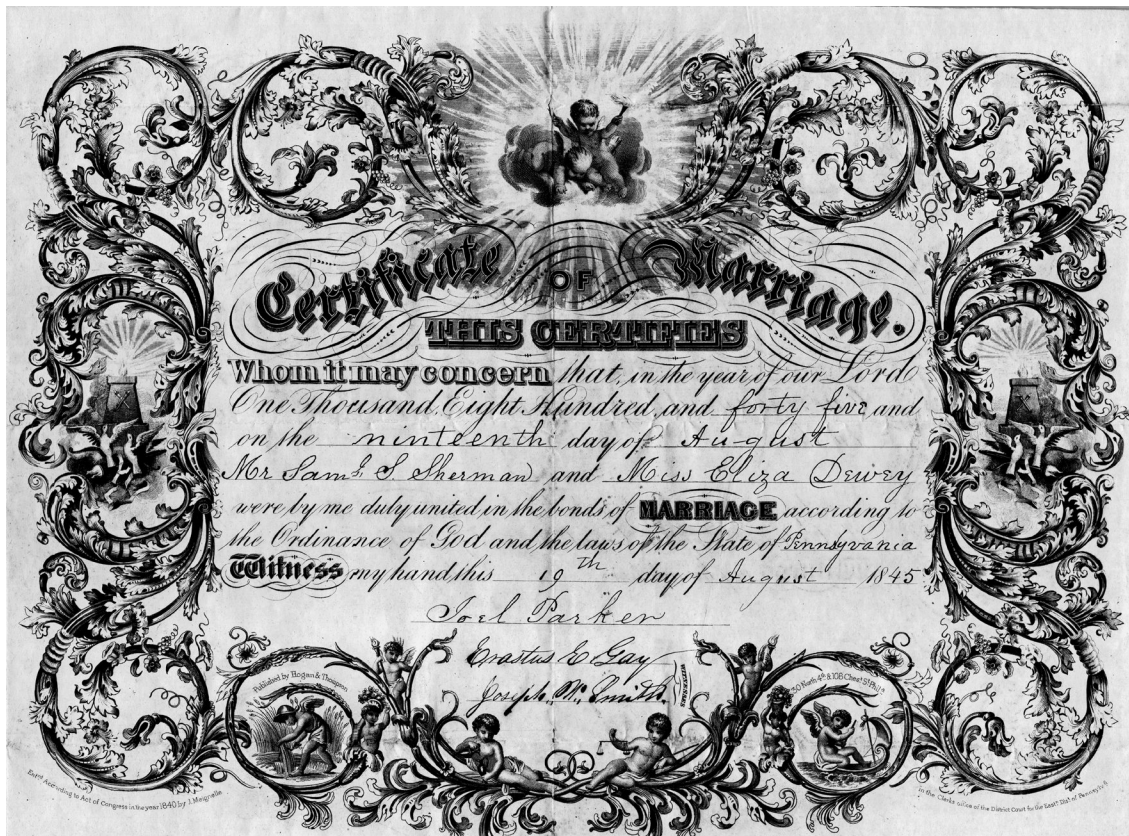 Certificate OF Marriage.
THIS CERTIFIES
Whom it may concern that, in the year of our Lord
One Thousand, Eight Hundred, and forty five and
on the ninteenth day of August
Mr Saml. S. Sherman and Miss Eliza Dewey
were by me duly united in the bonds of MARRIAGE according to
the Ordinance of God and the laws of the State of Pennsyvania
Witness my hand this 19th day of August 1845
Joel Parker
Erastus E Gay
Joseph W. Smith
WITNESSES
Published by Hogan & Thompson
30 North 4th & 108 Chest. St. Phila.
Entd. According to Act of Congress in the year 1840 by J. Maignelle
in the Clerks office of the District Court for the Eastn. Dist. of Pennsylva.